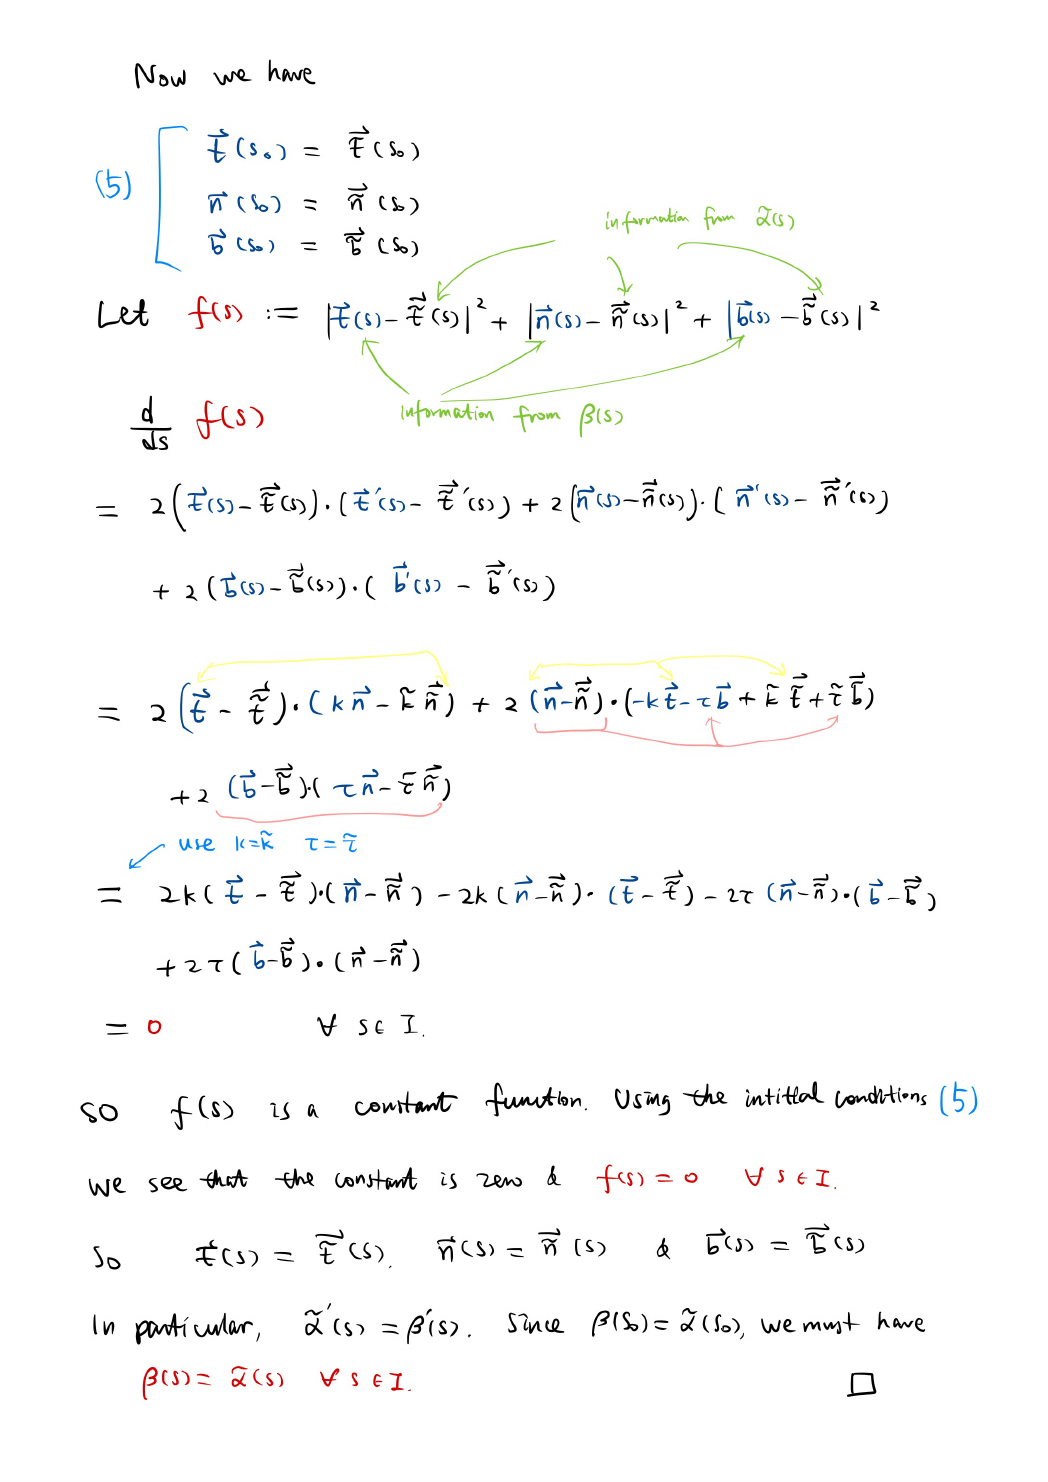 Now we have
t⃗(s₀) = t̃⃗(s₀)
(5)
n⃗(s₀) = ñ⃗(s₀)
b⃗(s₀) = b̃⃗(s₀)
information from α̃(s)
Let f(s) := |t⃗(s) - t̃⃗(s)|² + |n⃗(s) - ñ⃗(s)|² + |b⃗(s) - b̃⃗(s)|²
information from β(s)
d/ds f(s)
= 2(t⃗(s) - t̃⃗(s))·(t⃗'(s) - t̃⃗'(s)) + 2(n⃗(s) - ñ⃗(s))·(n⃗'(s) - ñ⃗'(s))
+ 2(b⃗(s) - b̃⃗(s))·(b⃗'(s) - b̃⃗'(s))
= 2(t⃗ - t̃⃗)·(kn⃗ - k̃ñ⃗) + 2(n⃗ - ñ⃗)·(-kt⃗ - τb⃗ + k̃t̃⃗ + τ̃b̃⃗)
+ 2(b⃗ - b̃⃗)·(τn⃗ - τ̃ñ⃗)
use k = k̃ τ = τ̃
= 2k(t⃗ - t̃⃗)·(n⃗ - ñ⃗) - 2k(n⃗ - ñ⃗)·(t⃗ - t̃⃗) - 2τ(n⃗ - ñ⃗)·(b⃗ - b̃⃗)
+ 2τ(b⃗ - b̃⃗)·(n⃗ - ñ⃗)
= 0 ∀ s ∈ I.
So f(s) is a constant function. Using the intitial conditions (5)
we see that the constant is zero & f(s) = 0 ∀ s ∈ I.
So t⃗(s) = t̃⃗(s), n⃗(s) = ñ⃗(s) & b⃗(s) = b̃⃗(s)
In particular, α̃'(s) = β'(s). Since β(s₀) = α̃(s₀), we must have
β(s) = α̃(s) ∀ s ∈ I. □